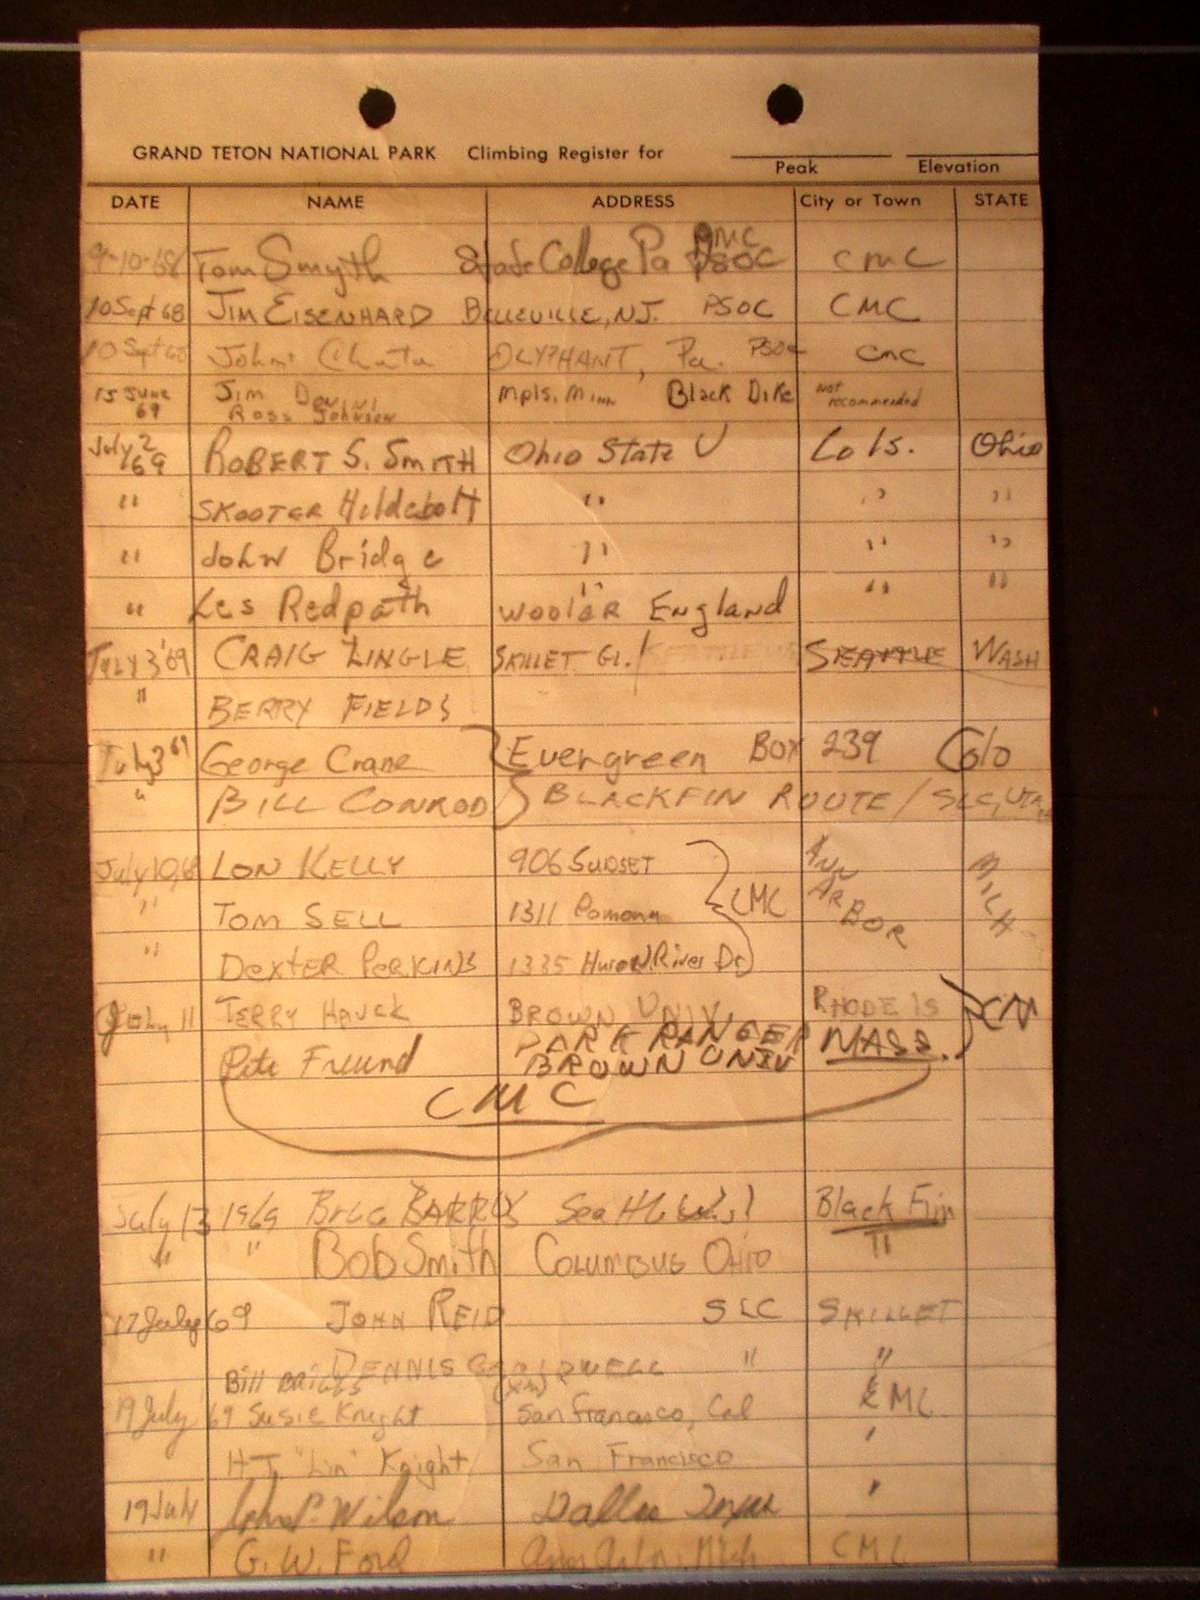 GRAND TETON NATIONAL PARK Climbing Register for
Peak Elevation
DATE NAME ADDRESS City or Town STATE
9-10-68 Tom Smyth State College Pa PSOC CMC
10 Sept 68 JIM EISENHARD BELLEVILLE, N.J. PSOC CMC
10 Sept 68 John OLYPHANT, Pa. PSOC CMC
15 June 69 Jim Mpls. Minn Black Dike Not recommended
Ross Johnson
July 2 69 ROBERT S. SMITH Ohio State U Cols. Ohio
" SKOOTER Hildebolt " " "
" John Bridge " " "
" Les Redpath " WOOLER England " "
July 3 '69 CRAIG ZINGLE SKILLET Gl. / SEATTLE WASH
" BERRY FIELDS
July 3 69 George Crane Evergreen Box 239 Colo
" BILL CONROD BLACKFIN ROUTE / SLC, UTAH
July 10, 69 LON KELLY 906 SUNSET CMC ANN ARBOR MICH.
" TOM SELL 1311 Pomona
" DEXTER PERKINS 1335 Huron River Dr
July 11 TERRY HAUCK BROWN UNIV. RHODE IS CM
PARK RANGER
Pete Freund BROWN UNIV MASS.
CMC
July 13 1969 BARRY Seattle Black Fin
" " Bob Smith COLUMBUS Ohio "
17 July 69 JOHN REID SLC SKILLET
DENNIS CALDWELL " "
Bill BRIGGS
19 July 69 Susie Knight San Francisco, Cal CMC
H.T. "Lin" Knight San Francisco "
19 July John P. Wilson Dallas Texas "
" G. W. FORD Ann Arbor, Mich CMC